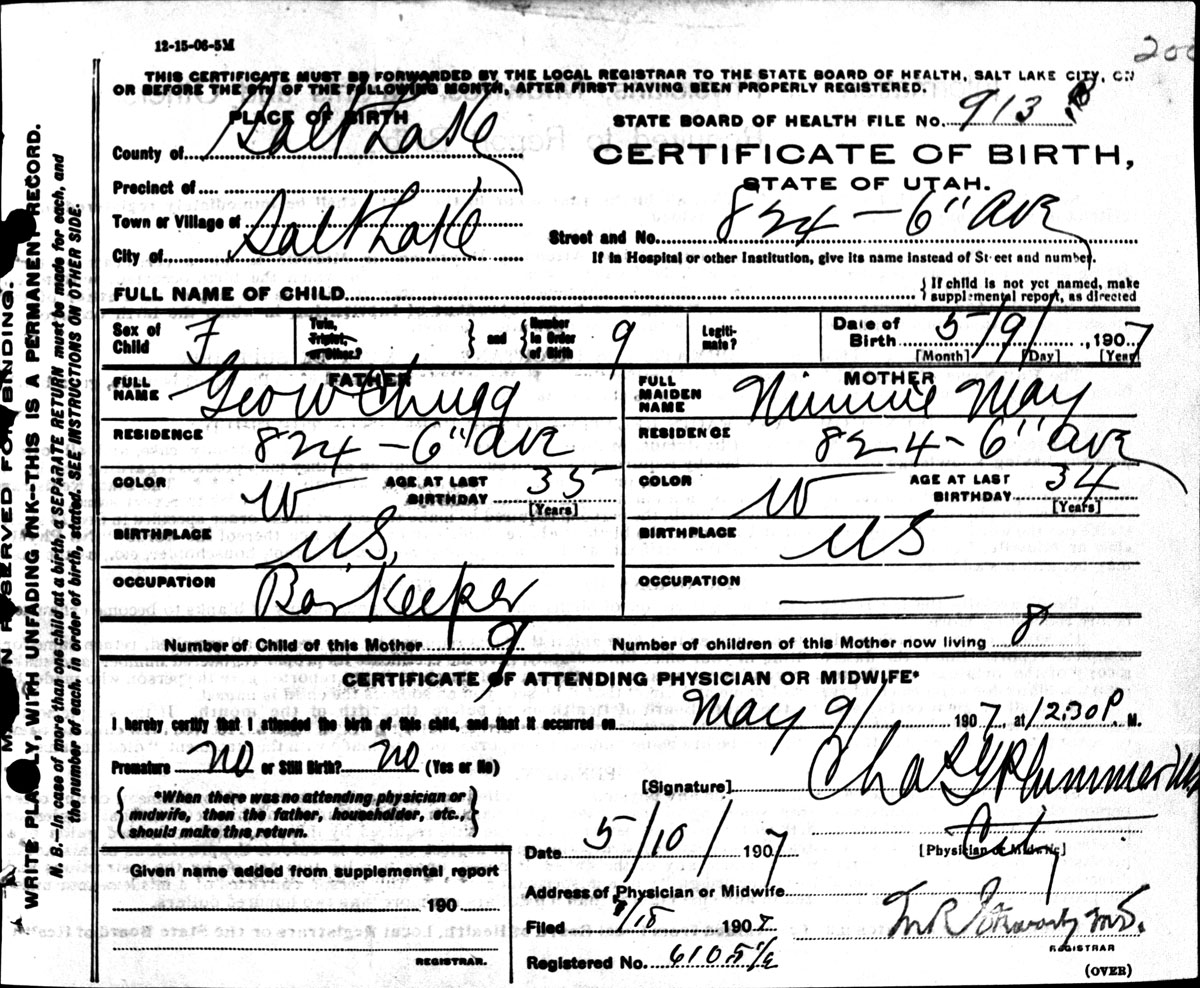 200
12-15-06-5M
THIS CERTIFICATE MUST BE FORWARDED BY THE LOCAL REGISTRAR TO THE STATE BOARD OF HEALTH, SALT LAKE CITY, ON
OR BEFORE THE 5TH OF THE FOLLOWING MONTH, AFTER FIRST HAVING BEEN PROPERLY REGISTERED.
PLACE OF BIRTH
County of Salt Lake
Precinct of
Town or Village of
City of Salt Lake
STATE BOARD OF HEALTH FILE No. 913
CERTIFICATE OF BIRTH,
STATE OF UTAH.
Street and No. 824 - 6" Ave
If in Hospital or other Institution, give its name instead of Street and number.
FULL NAME OF CHILD
If child is not yet named, make
supplemental report, as directed
Sex of Child F
Twin, Triplet, or Other?
and
Number in Order of Birth 9
Legiti-mate?
Date of Birth 5/9/, 1907
[Month] [Day] [Year]
FATHER
FULL NAME Geo W Chugg
RESIDENCE 824 - 6" Ave
COLOR W AGE AT LAST BIRTHDAY 35 [Years]
BIRTHPLACE U.S.
OCCUPATION Bar Keeper
MOTHER
FULL MAIDEN NAME Minnie May
RESIDENCE 824 - 6" Ave
COLOR W AGE AT LAST BIRTHDAY 34 [Years]
BIRTHPLACE US
OCCUPATION
Number of Child of this Mother 9 Number of children of this Mother now living 8
CERTIFICATE OF ATTENDING PHYSICIAN OR MIDWIFE*
I hereby certify that I attended the birth of this child, and that it occurred on May 9/ 1907, at 12.30 P. M.
Premature no or Still Birth? no (Yes or No)
*When there was no attending physician or
midwife, then the father, householder, etc.,
should make this return.
[Signature] Chas G Plummer MD
Date 5/10/ 1907
[Physician or Midwife]
Address of Physician or Midwife City
Given name added from supplemental report
190
REGISTRAR.
Filed 5/15 1907
Registered No. 6105 1/2
REGISTRAR
(OVER)
MARGIN RESERVED FOR BINDING.
WRITE PLAINLY, WITH UNFADING INK--THIS IS A PERMANENT RECORD.
N. B.--In case of more than one child at a birth, a SEPARATE RETURN must be made for each, and
the number of each, in order of birth, stated. SEE INSTRUCTIONS ON OTHER SIDE.